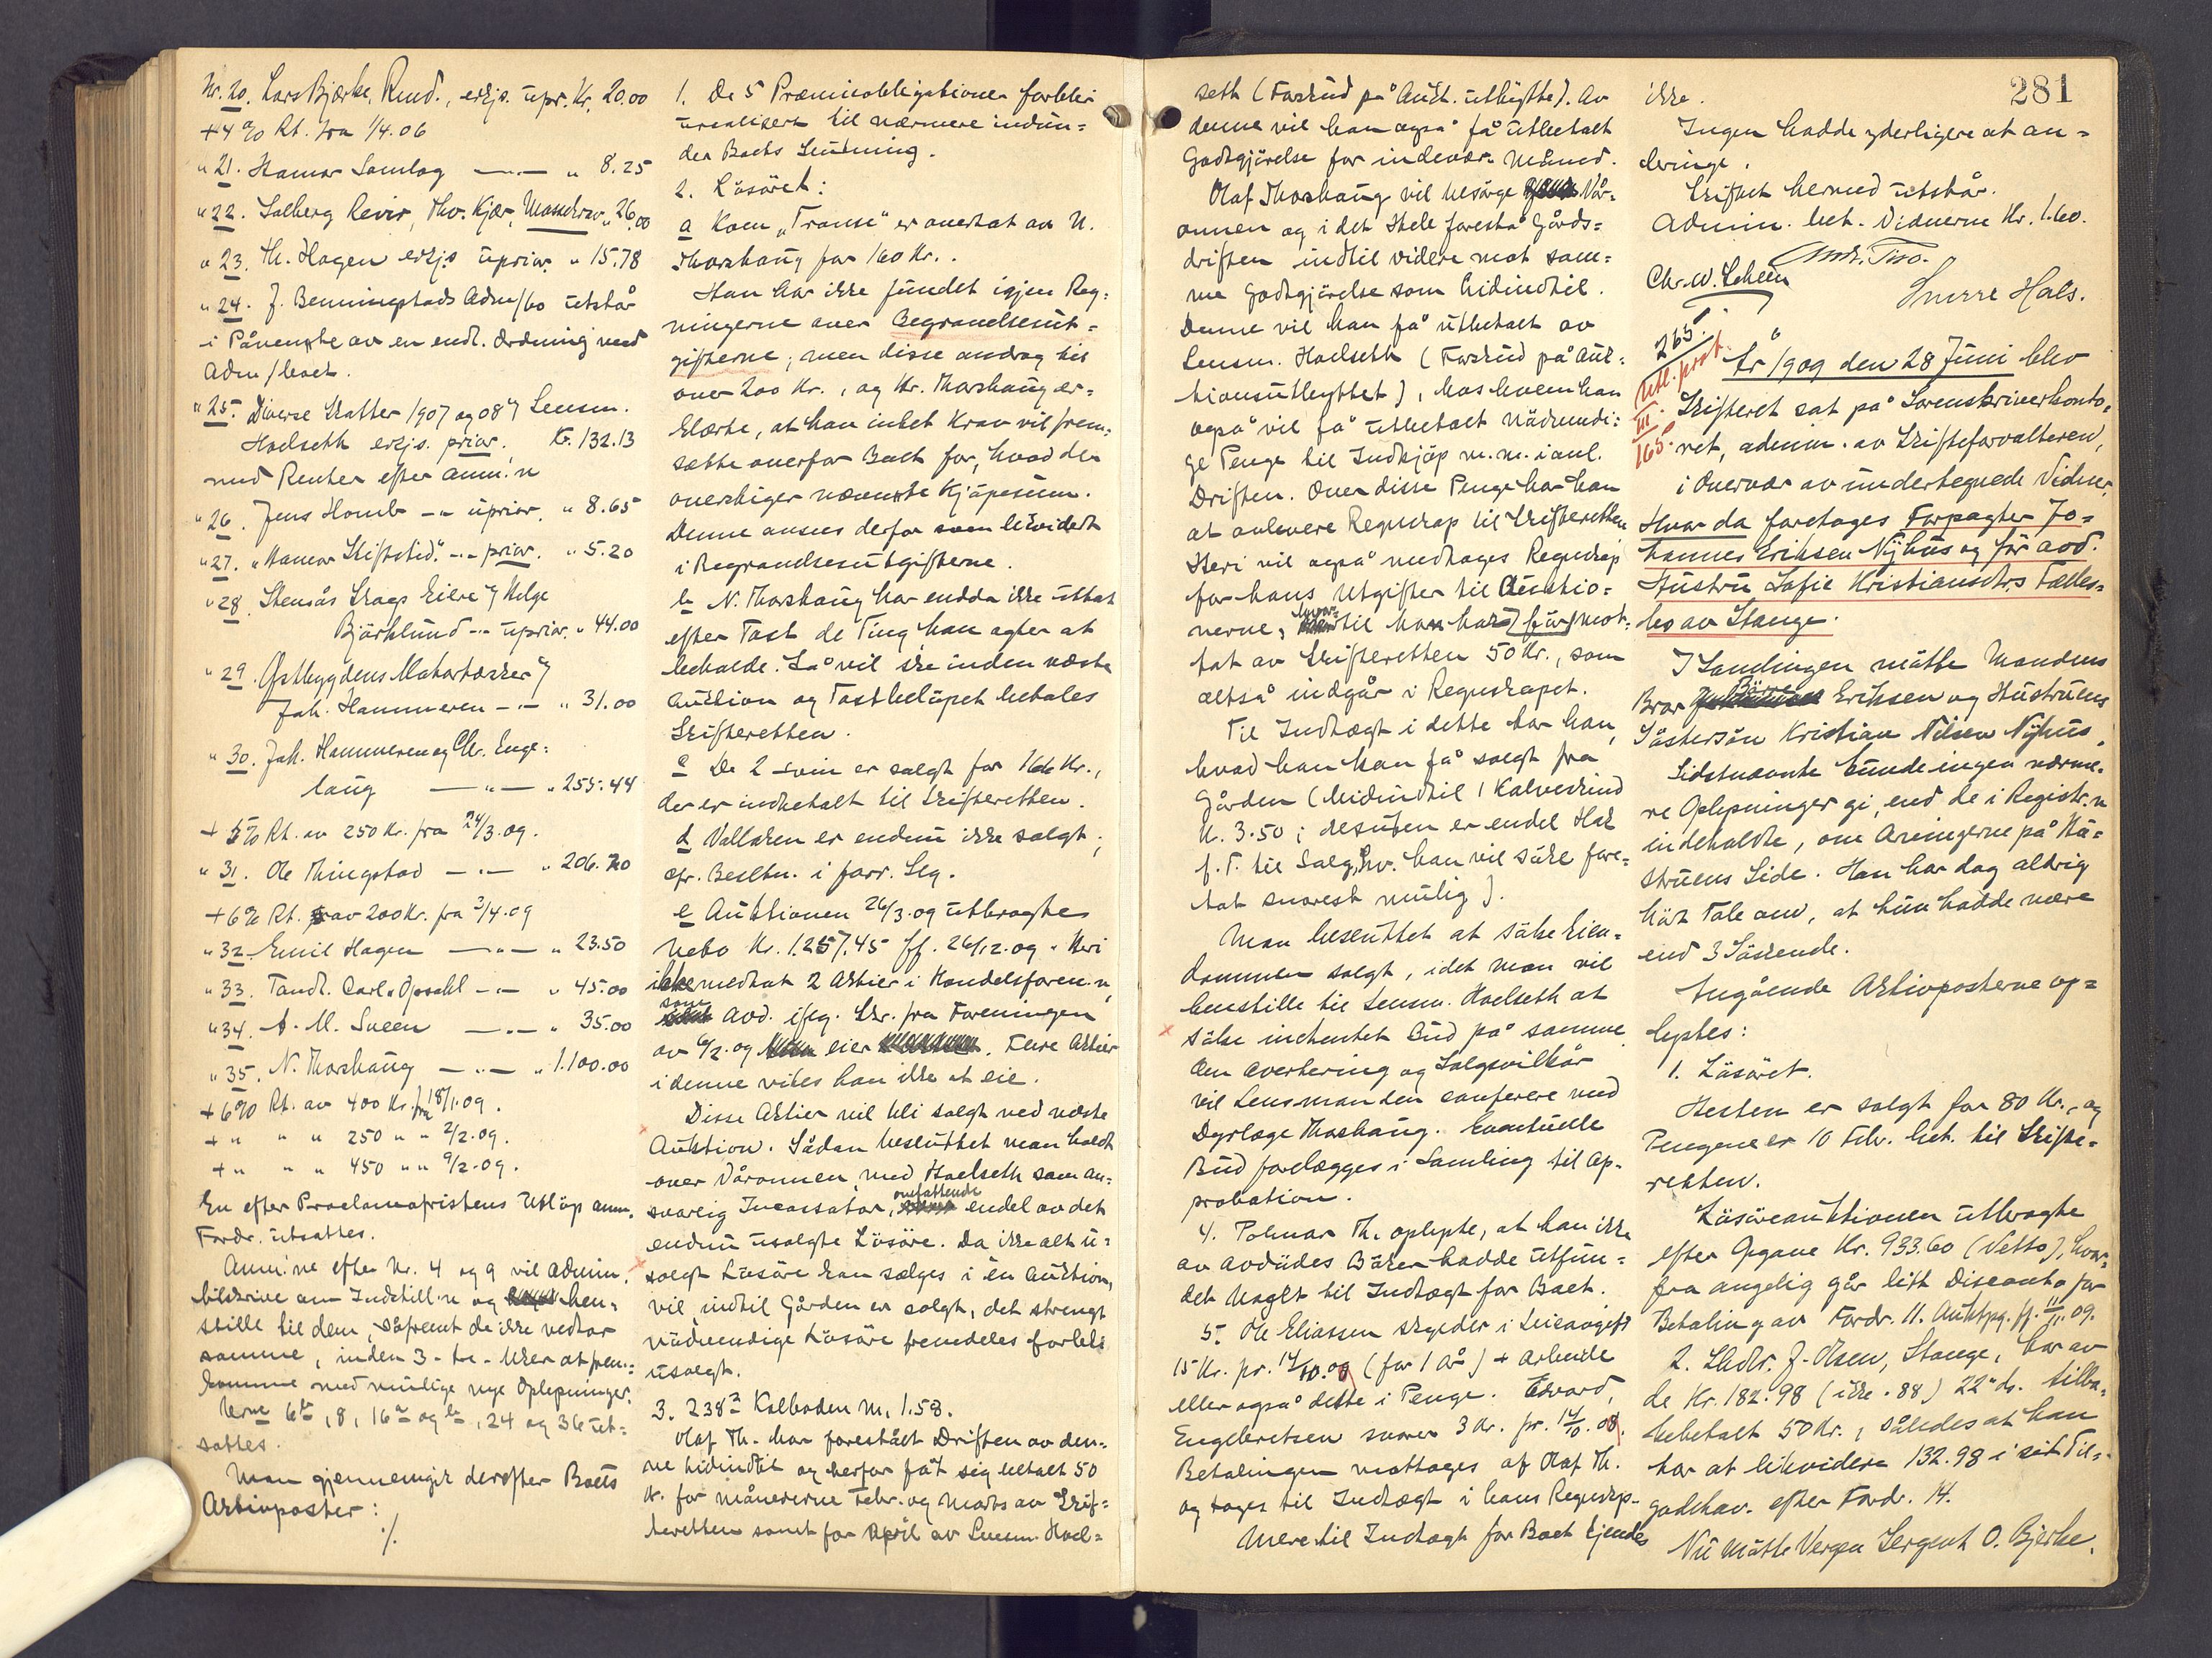 Nr. 20. Lars Bjerke, Rud., erkjs. upr. Kr. 20.00
+ 4 % Rt. fra 1/4.06
" 21. Hamar Samlag —"— " 8.25
" 22. Solberg Revir, Thv. Kjær, " 26.00
" 23. Th. Hagen erkjs upriov. " 15.78
" 24. J. Benningstads Adm/bo utstår
i Påvente av en endl. Ordning med
Adm/boet.
" 25. Diverse Skatter 1907 og 08 v/ Lensm.
Hoelseth erkjs. prior. Kr. 132.13
med Renter efter anm.'n
" 26. Jens Homb —"— uprior. " 8.65
" 27. "Hamar Stiftstid." —"— prior. " 5.20
" 28. Stensås Skogs Eiere v/ Helge
Björklund —"— uprior. " 44.00
" 29. Østbygdens Motortærsker v/
Joh. Hammeren —"— " 31.00
" 30. Joh. Hammeren og Chr. Enge=
laug —"— " 255.44
+ 5 % Rt. av 250 Kr. fra 24/3.09.
" 31. Ole Thingstad —"— " 206.70
+ 6 % Rt. av 200 Kr. fra 3/4.09
" 32. Emil Hagen —"— " 23.50
" 33. Tandl. Carl Opsahl —"— " 45.00
" 34. A. M. Sveen —"— " 35.00
" 35. N. Thorshaug —"— " 1.100.00
+ 6 % Rt. av 400 Kr. fra 18/1.09.
+ " " " 250 " " 2/2.09.
+ " " " 450 " " 9/2.09.
En efter Proclamafristens Utløp anm.
Fordr. utsattes.
Anm.'ne efter Nr. 4 og 9 vil admin.
tilskrive om Indstill'n og hen=
stille til dem, såfremt de ikke vedtar
samme, inden 3 - tre - Uker at frem=
komme med mulige nye Oplysninger.
Nerne 6 b, 8, 16 a og b, 24 og 36 ut=
sattes.
Man gjennemgik derefter Boets
Aktivposter:
./.
1. De 5 Præmieobligationer forblir
urealisert til nærmere indun=
der Boets Slutning.
2. Løsøret:
a Koen "Transe" er overtat av N.
Thorshaug for 160 Kr.
Han har ikke fundet igjen Reg=
ningerne over Begravelsesut=
gifterne; men disse androg til
over 200 Kr., og Hr. Thorshaug er=
klærte, at han intet Krav vil frem=
sætte overfor Boet for, hvad der
overstiger nævnte Kjøpesum.
Denne ansees derfor som likvidert
i Begravelsesutgifterne.
b N. Thorshaug har endda ikke uttat
efter Taxt de Ting, han agter at
beholde. Så vil ske inden næste
Auktion og Taxtbeløpet betales
Skifteretten.
c De 2 svin er solgt for 166 Kr.,
der er indbetalt til Skifteretten.
d Vallaken er endnu ikke solgt;
cfr. Besltn. i forr. Slg.
e Auktionen 26/3.09 utbragte
netto Kr. 1.257.45 ff. 26/12.09. Heri
ikke medtat 2 Aktier i Handelsforen.'n,
som avd. iflg. Skr. fra Foreningen
av 6/2.09 eier. Flere Aktier
i denne vites han ikke at eie.
Disse Aktier vil bli solgt ved næste
Auktion. Sådan besluttet man holdt
over Våronnen, med Hoelseth som an=
svarlig Incassator, omfattende endel av det
endnu usolgte Løsøre. Da ikke alt u=
solgt Løsøre kan sælges i én Auktion,
vil, indtil Gården er solgt, det strengt
nødvendige Løsøre fremdeles forbli
usolgt.
3. 238 a Kolboden m, 1.58.
Olaf Th. har forestått Driften av den=
ne hidindtil og herfor fåt sig betalt 50
Kr. for månederne Febr. og Marts av Skif=
teretten samt for April av Lensm. Hoel=
seth (Forskud på Aukt. utbyttet). Av
denne vil han også få utbetalt
Godtgjørelse for indevær. Måned.
Olaf Thorshaug vil besørge Vår=
onnen og i det Hele forestå Gårds=
driften indtil videre mot sam=
me Godtgjørelse som hidindtil.
Denne vil han få utbetalt av
Lensm. Hoelseth (Forskud på Auk=
tionsutbyttet), hos hvem han
også vil få utbetalt nødvendi=
ge Penge til Indkjøp m.m. i anl.
Driften. Over disse Penge har han
at avlevere Regnskap til Skifteretten
Heri vil også medtages Regnskap
for hans Utgifter til Auktio=
nerne, hvortil han har før mot=
tat av Skifteretten 50 Kr., som
altså indgår i Regnskapet.
Til Indtægt i dette har han,
hvad han kan få solgt fra
Gården (hidindtil 1 Kalveskind
Kr. 3.50; desuten er endel Hø
f. T. til Salg, hv. han vil søke fore=
tat snarest mulig).
Man besluttet at søke Eien=
dommen solgt, idet man vil
henstille til Lensm. Hoelseth at
søke indhentet Bud på samme
Om Avertering og Salgsvilkår
vil Lensmanden conferere med
Dyrlæge Thorshaug. Eventuelle
Bud forelægges i Samling til Ap=
probation.
4. Polmar Th. oplyste, at han ikke
av avdødes Bøker hadde utfun=
det Noget til Indtægt for Boet.
5. Ole Eliassen skylder i Leieavgift
15 Kr. pr. 14/10.09 (for 1 år) + Arbeide
eller også dette i Penge. Edvard
Engebretsen svarer 3 Kr. pr. 14/10.08.
Betalingen mottages af Olaf Th.
og tages til Indtægt i hans Regnskp.
Mere til Indtægt for Boet kjendes
281
ikke.
Ingen hadde yderligere at an=
bringe.
Skiftet hermed utstår.
Admin. bet. Vidnerne Kr. 1.60.
Chr. W. Scheen
Snorre Hals.
265
Utl. prot.
III.
165.
År 1909 den 28 Juni blev
Skifteret sat på Sorenskriverkonto=
ret, admin. av Skifteforvalteren,
i Overvær av undertegnede Vidner,
Hvor da foretoges Forpagter Jo=
hannes Eriksen Nyhus og før avd.
Hustru Sofie Kristiansdtrs Fælles=
bo av Stange.
I Samlingen møtte Mandens
Bror Eriksen og Hustruens
Søstersøn Kristian Nilsen Nyhus.
Sidstnævnte kunde ingen nærme=
re Oplysninger gi, end de i Registr.'n
indeholdte, om Arvingerne på Hu=
struens Side. Han har dog aldrig
hørt Tale om, at hun hadde mere
end 3 Søskende.
Angående Aktivposterne op=
lystes:
1. Løsøret.
Hesten er solgt for 80 Kr., og
Pengene er 10 Febr. bet. til Skifte=
retten.
Løsøreauktionen utbragte
efter Opgave Kr. 933.60 (Netto), hvor=
fra angelig går litt Disconto for
Betaling av Fordr. 11. Auktpg. ff. 11/11.09.
2. J. Olsen, Stange, har av
de Kr. 182.98 (ikke .88) 22 ds. tilba=
kebetalt 50 Kr., således at han
har at likvidere 132.98 i sit Til=
godehav. efter Fordr. 14.
Nu møtte Vergen Sergent O. Bjerke.